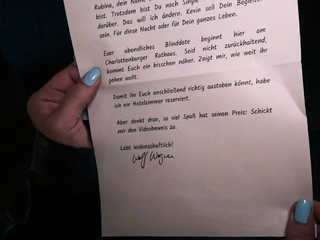 Rubina, dein Name
bist. Trotzdem bist Du noch Single
darüber. Das will ich ändern. Kevin soll Dein Begleiter
sein. Für diese Nacht oder für Dein ganzes Leben.
Euer abendliches Blinddate beginnt hier am
Charlottenburger Rathaus. Seid nicht zurückhaltend,
kommt Euch ein bisschen näher. Zeigt mir, wie weit ihr
gehen wollt.
Damit ihr Euch anschließend richtig austoben könnt, habe
ich ein Hotelzimmer reserviert.
Aber denkt dran, so viel Spaß hat seinen Preis: Schickt
mir den Videobeweis zu.
Lebt leidenschaftlich!